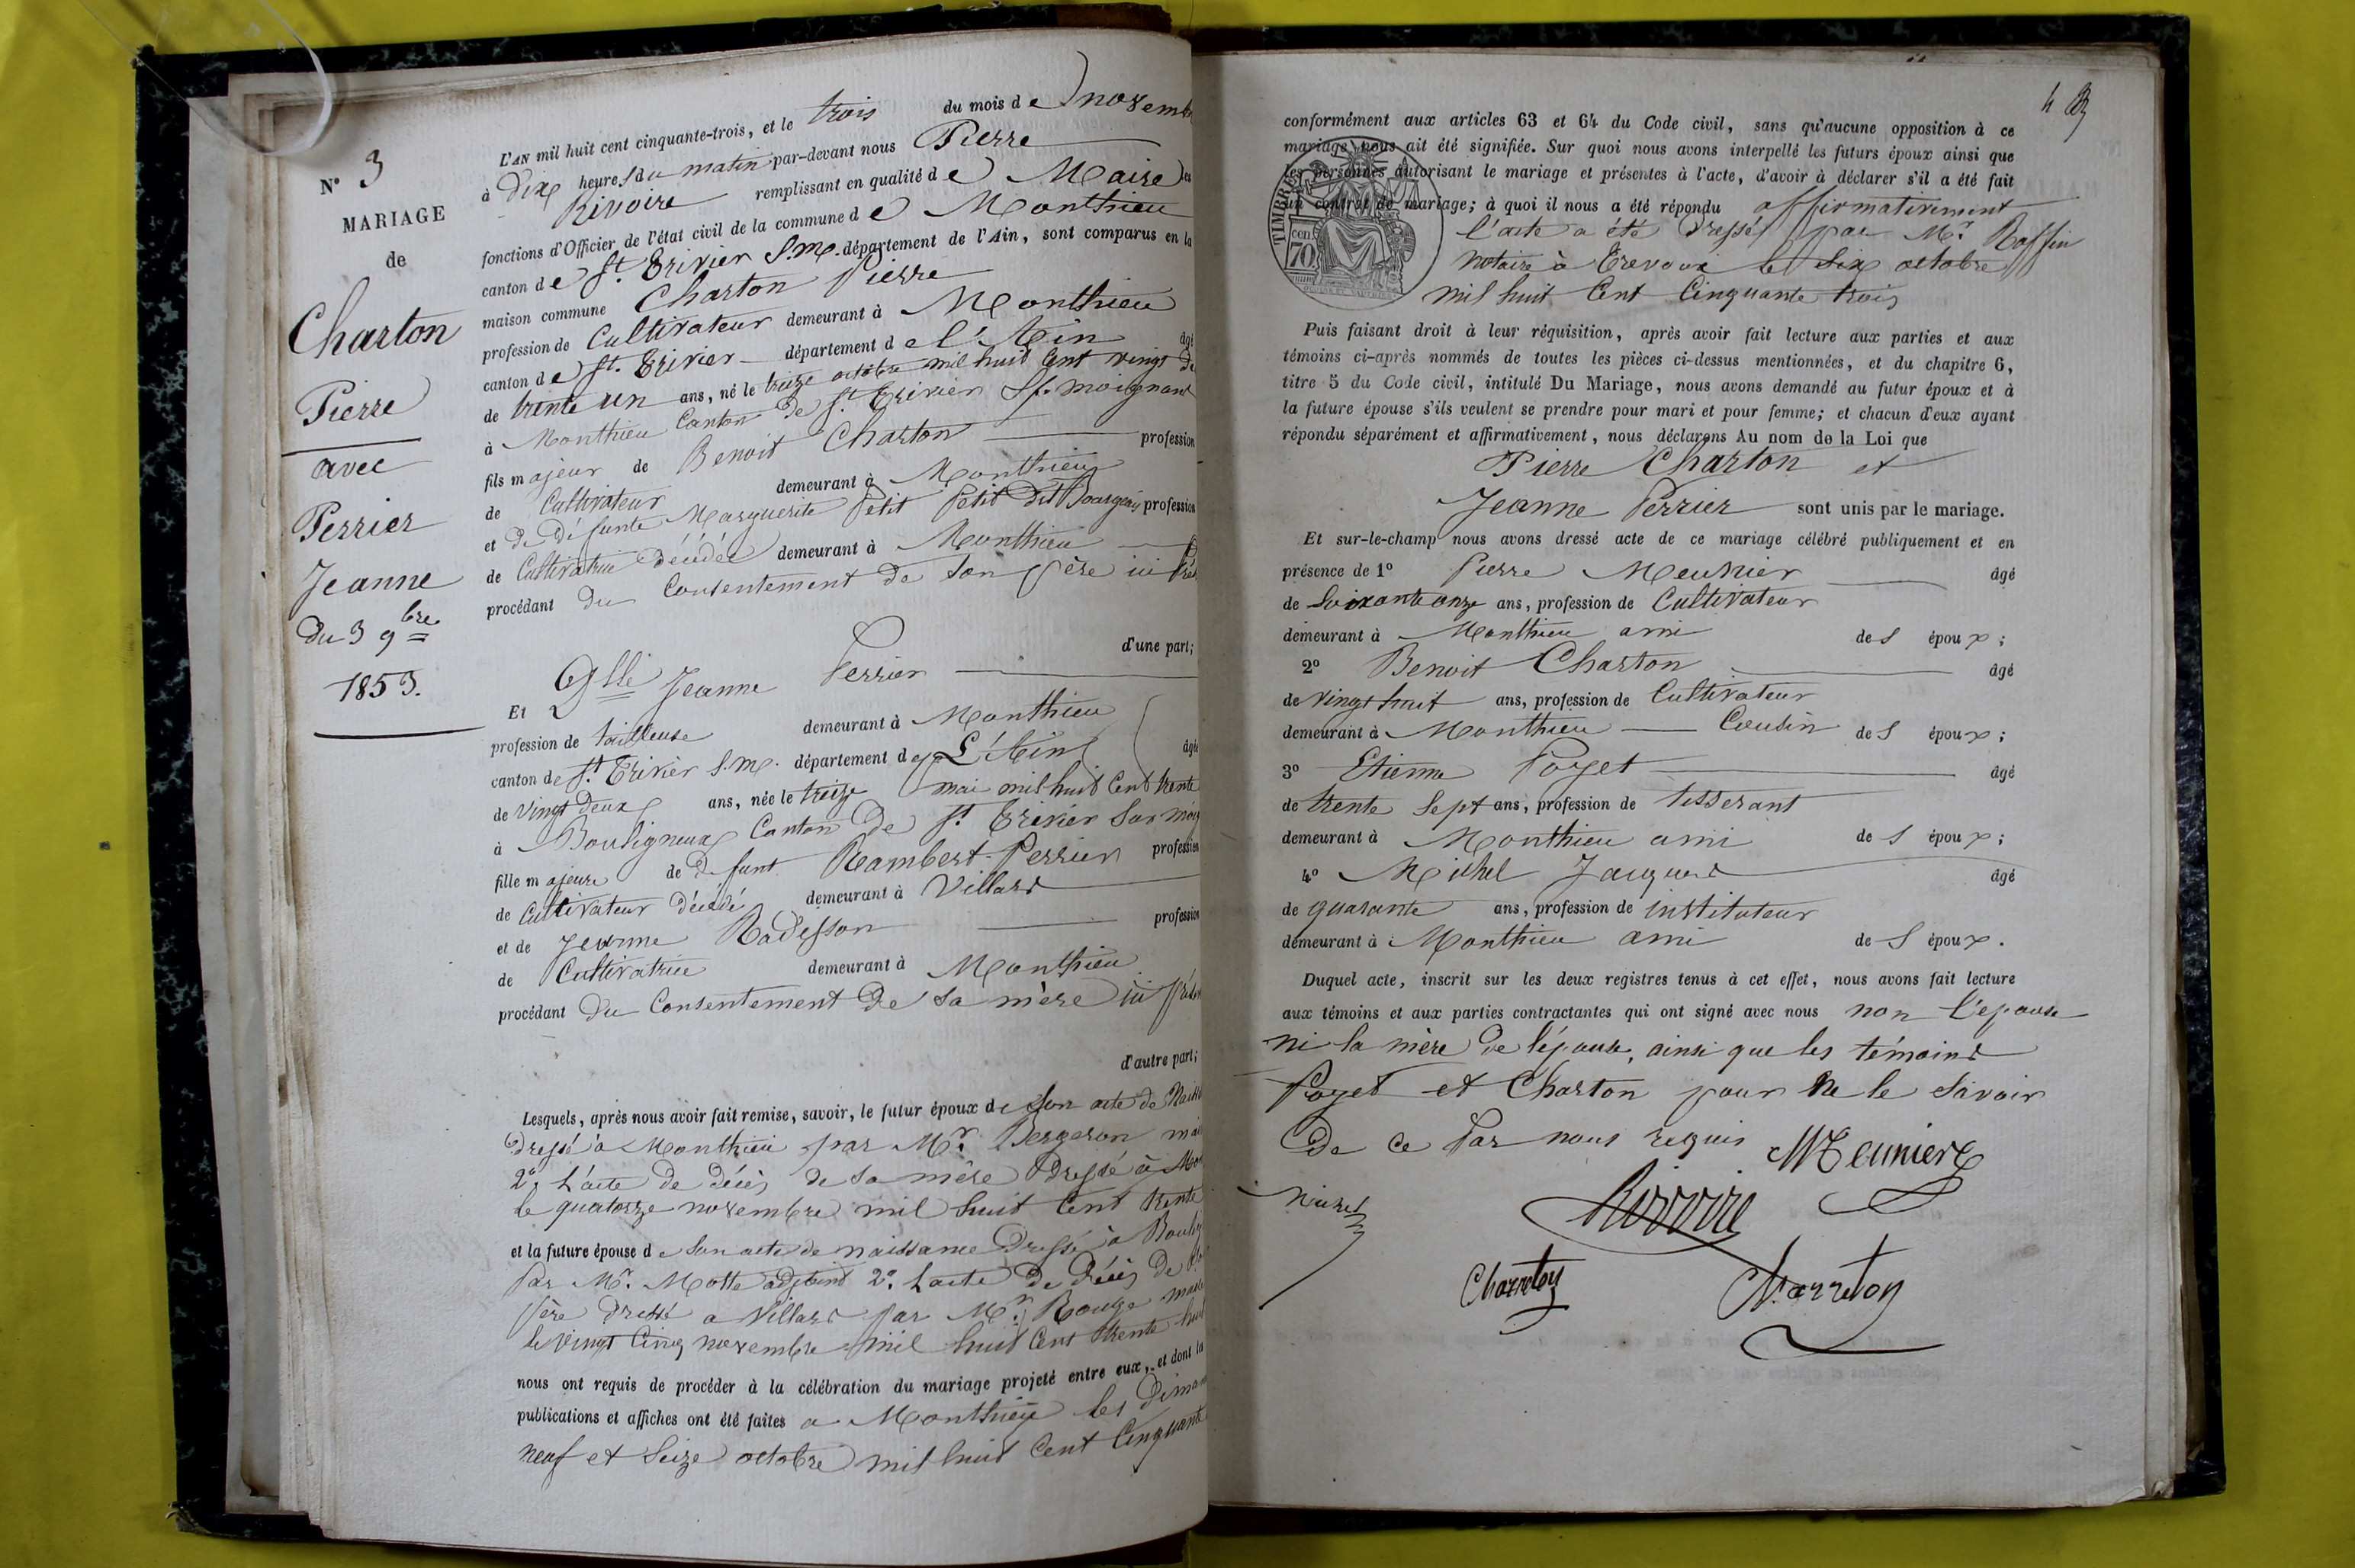 N° 3
MARIAGE
de
Charton
Pierre
avec
Perrier
Jeanne
du 3 9bre
1853.
L'AN mil huit cent cinquante-trois, et le trois du mois de novemb
à dix heures du matin par-devant nous Pierre
Rivoire remplissant en qualité de Maire les
fonctions d'Officier de l'état civil de la commune de Monthieu
canton de St. Trivier S. M. département de l'Ain, sont comparus en la
maison commune Charton Pierre
profession de Cultivateur demeurant à Monthieu
canton de St. Trivier département de l'Ain âgé
de trente un ans, né le treize octobre mil huit cent vingt de
à Monthieu Canton de St Trivier Sr. moignans
fils majeur de Benoit Charton profession
de Cultivateur demeurant à Monthieu
et de défunte Marguerite Petit Petit dit Bourgeau profession
de Cultivatrice décédée demeurant à Monthieu
procédant du Consentement de son père ici prés
d'une part;
Et Dlle Jeanne Perrier
profession de tailleuse demeurant à Monthieu
canton de St Trivier S. M. département de L'Ain âgée
de vingt deux ans, née le treize mai mil huit cent trente
à Bouligneux Canton de St Trivier Sur moig
fille majeure de défunt Rambert Perrier profession
de Cultivateur décédé demeurant à Villars
et de Jeanne Radisson profession
de Cultivatrice demeurant à Monthieu
procédant du Consentement de sa mère ici présen
d'autre part;
Lesquels, après nous avoir fait remise, savoir, le futur époux de son acte de Naiss
dressé à Monthieu par Mr. Bergeron mai
2° L'acte de décès de sa mère dressé à Mon
le quatorze novembre mil huit Cent trente
et la future épouse de son acte de naissance dressé à Boulig
par Mr. Motte adjoint 2° L'acte de décès de
père dressé a Villars par Mr. Rouge mai
le vingt Cinq novembre mil huit Cent trente huit
nous ont requis de procéder à la célébration du mariage projeté entre eux, et dont les
publications et affiches ont été faites a Monthieu les Diman
neuf et Seize octobre mil huit Cent Cinquante
conformément aux articles 63 et 64 du Code civil, sans qu'aucune opposition à ce
mariage nous ait été signifiée. Sur quoi nous avons interpellé les futurs époux ainsi que
les personnes autorisant le mariage et présentes à l'acte, d'avoir à déclarer s'il a été fait
un contrat de mariage; à quoi il nous a été répondu affirmativement
TIMBRE
cen. 70
l'acte a été dressé par Mr. Raffin
notaire à Trevoux le Six octobre
mil huit Cent Cinquante trois
Puis faisant droit à leur réquisition, après avoir fait lecture aux parties et aux
témoins ci-après nommés de toutes les pièces ci-dessus mentionnées, et du chapitre 6,
titre 5 du Code civil, intitulé Du Mariage, nous avons demandé au futur époux et à
la future épouse s'ils veulent se prendre pour mari et pour femme; et chacun d'eux ayant
répondu séparément et affirmativement, nous déclarons Au nom de la Loi que
Pierre Charton et
Jeanne Perrier sont unis par le mariage.
Et sur-le-champ nous avons dressé acte de ce mariage célébré publiquement et en
présence de 1° Pierre Meunier âgé
de Soixante onze ans, profession de Cultivateur
demeurant à Monthieu ami des époux;
2° Benoit Charton âgé
de vingt huit ans, profession de Cultivateur
demeurant à Monthieu Cousin des époux;
3° Etienne Poyet âgé
de trente Sept ans, profession de tisserant
demeurant à Monthieu ami des époux;
4° Michel Jacques âgé
de quarante ans, profession de instituteur
demeurant à Monthieu ami des époux.
Duquel acte, inscrit sur les deux registres tenus à cet effet, nous avons fait lecture
aux témoins et aux parties contractantes qui ont signé avec nous non l'épouse
ni la mère de l'épouse, ainsi que les témoins
Poyet et Charton pour ne le Savoir
De ce Par nous requis Meunier
Michel
Rivoire
Charreton
Charreton